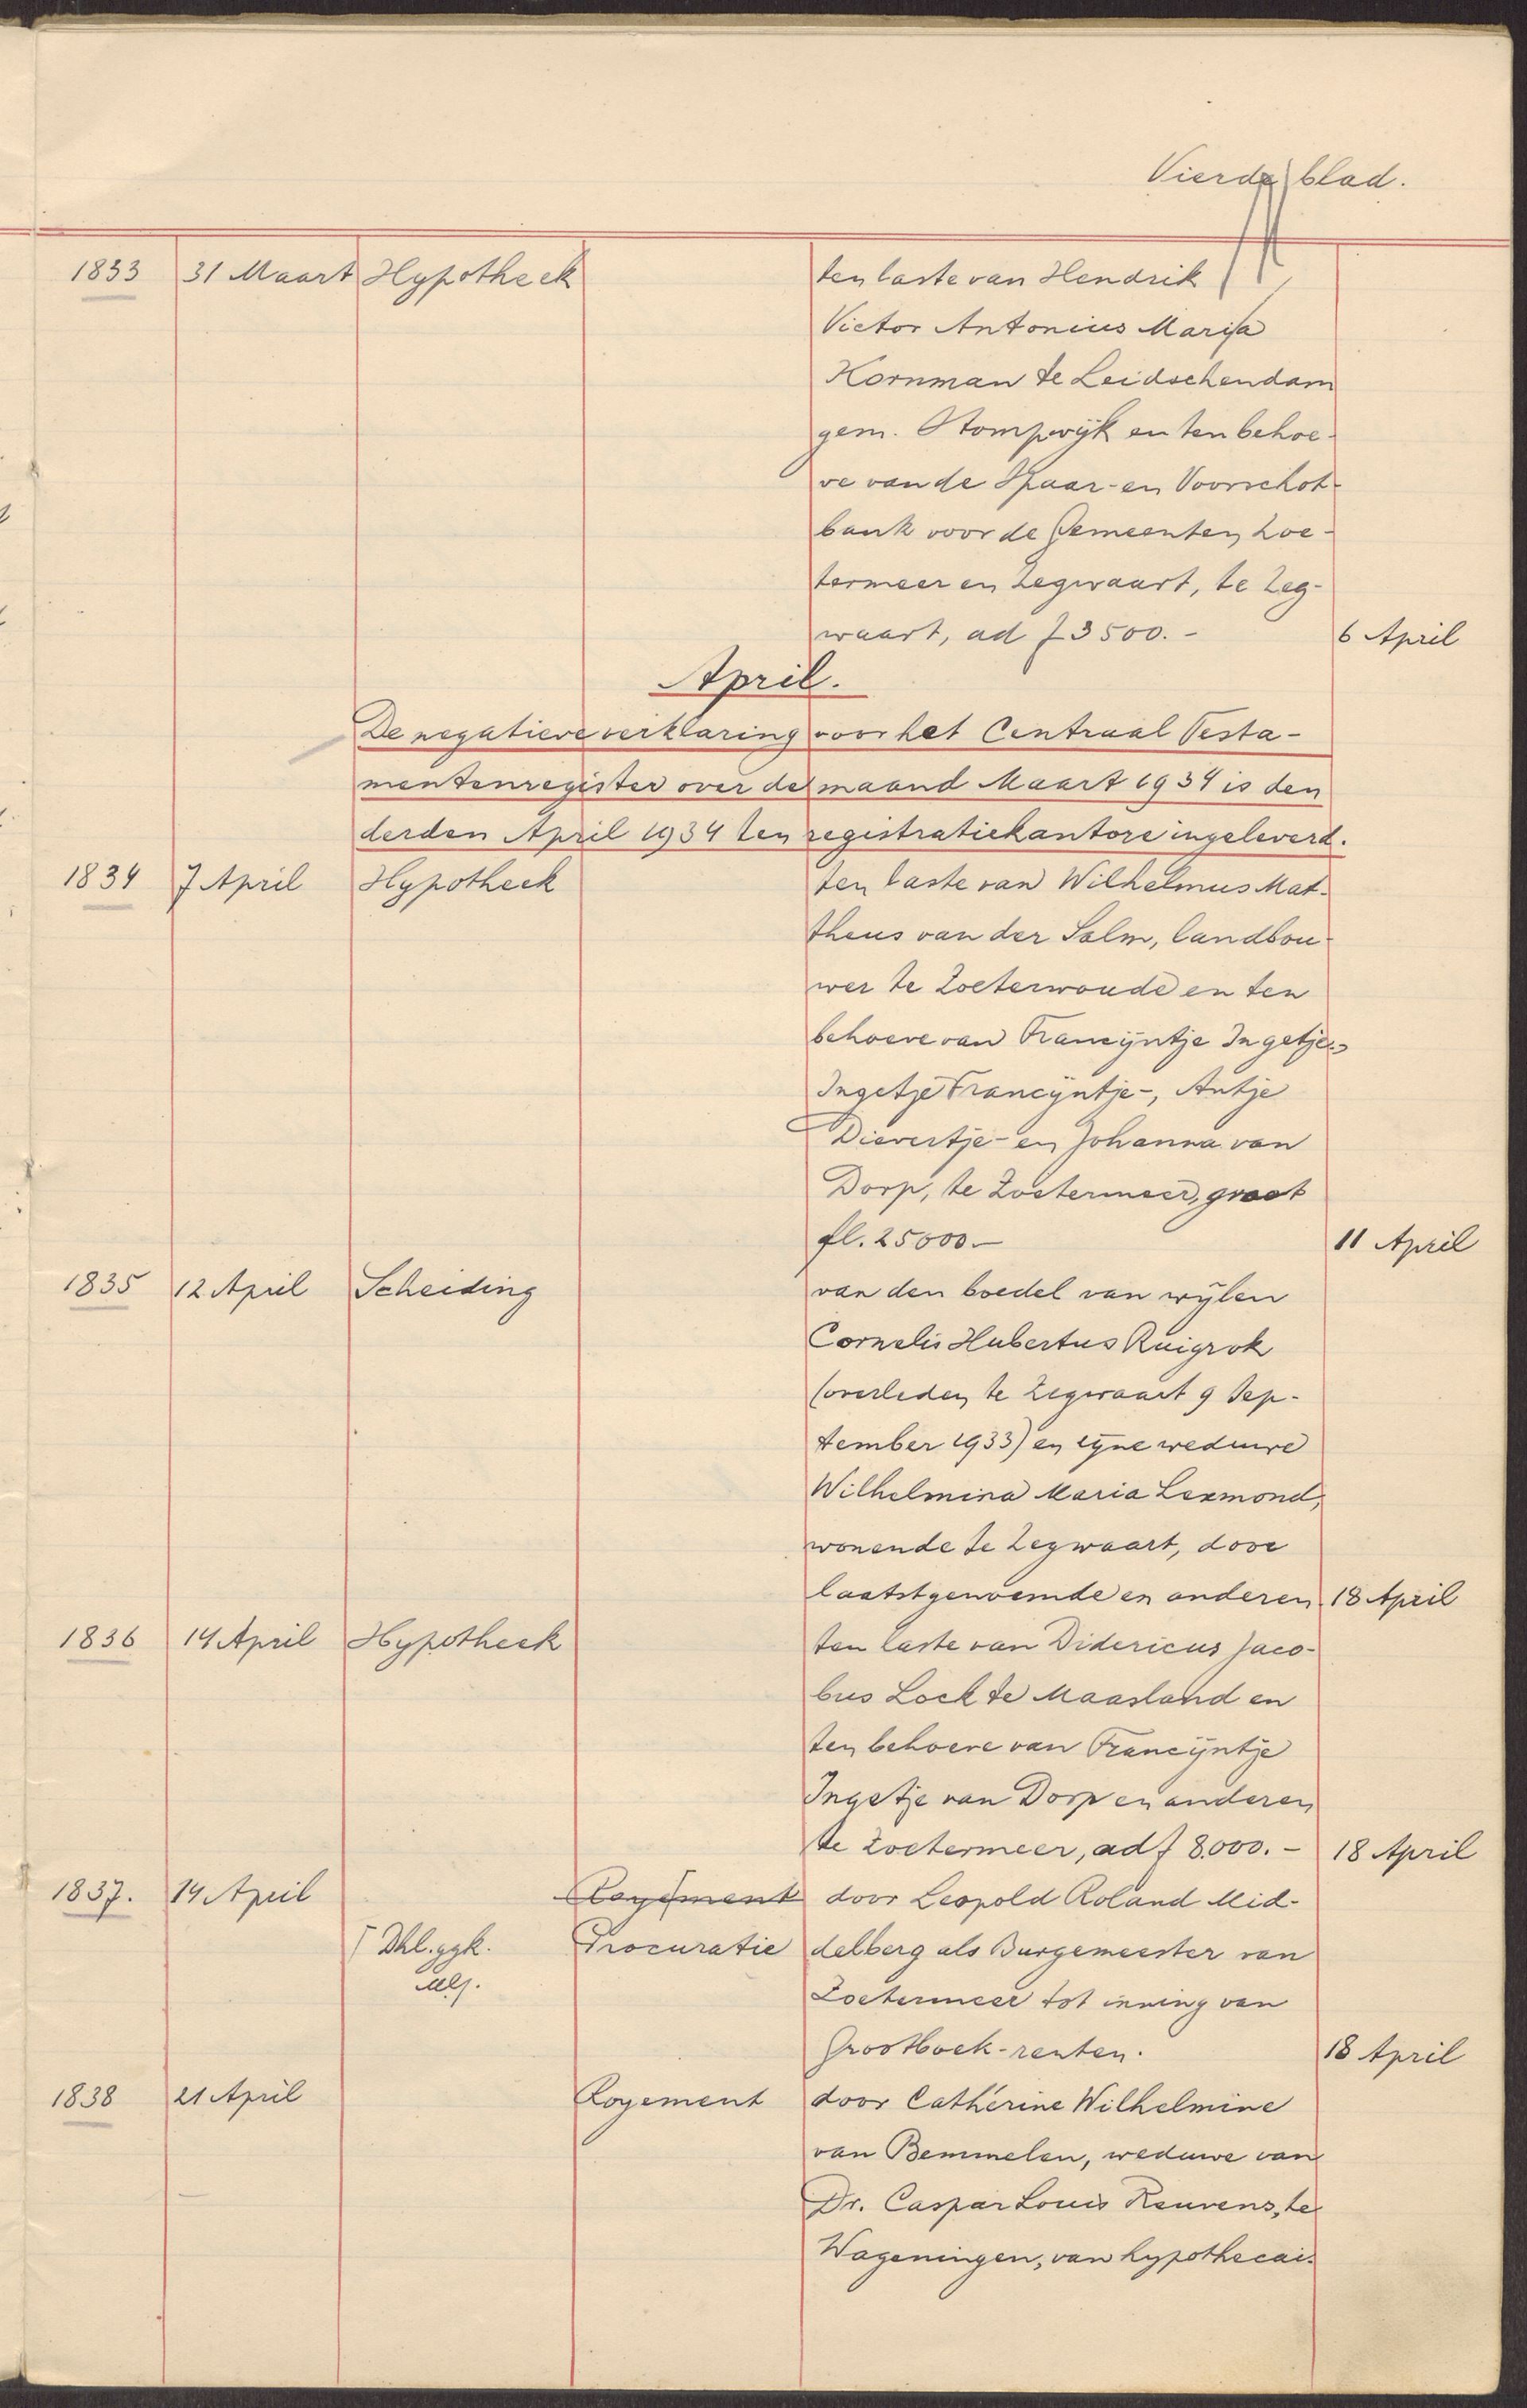 Vierde blad.
1833 31 Maart Hypotheek ten laste van Hendrik
Victor Antonius Maria
Kornman te Leidschendam
gem. Stompwijk en ten behoe-
ve van de Spaar- en Voorschot-
bank voor de Gemeenten Zoe-
termeer en Zegwaart, te Zeg-
waart, ad f 3500.- 6 April
April.
De negatieve verklaring voor het Centraal Testa-
mentenregister over de maand Maart 1934 is den
derden April 1934 ten registratiekantore ingeleverd.
1834 7 April Hypotheek ten laste van Wilhelmus Mat-
theus van der Salm, landbou-
wer te Zoeterwoude en ten
behoeve van Francijntje Ingetje-,
Ingetje Francijntje-, Antje
Dievertje- en Johanna van
Dorp, te Zoetermeer, groot
fl. 25000.- 11 April
1835 12 April Scheiding van den boedel van wijlen
Cornelis Hubertus Ruigrok
(overleden te Zegwaart 9 Sep-
tember 1933) en zijne weduwe
Wilhelmina Maria Lexmond,
wonende te Zegwaart, door
laatstgenoemde en anderen 18 April
1836 14 April Hypotheek ten laste van Didericus Jaco-
bus Lock te Maasland en
ten behoeve van Francijntje
Ingetje van Dorp en anderen
te Zoetermeer, ad f 8.000.- 18 April
1837. 14 April Royement door Leopold Roland Mid-
Dhl. ggk. Procuratie delberg als Burgemeester van
Zoetermeer tot inning van
Grootboek-renten. 18 April
1838 21 April Royement door Cathérine Wilhelmine
van Bemmelen, weduwe van
Dr. Caspar Louis Reuvens, te
Wageningen, van hypothecai-